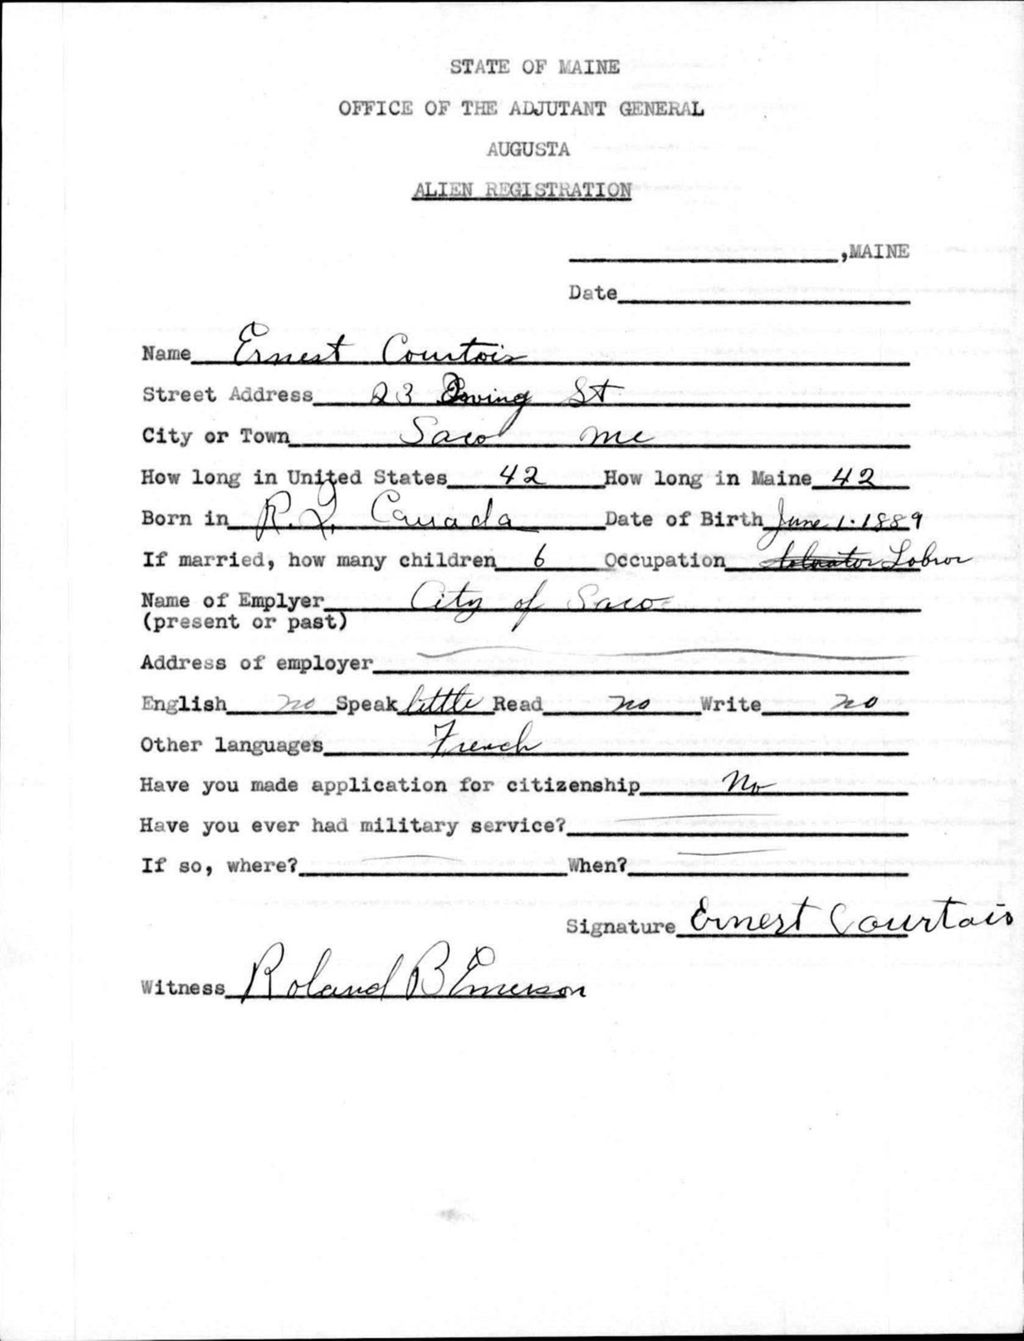 STATE OF MAINE
OFFICE OF THE ADJUTANT GENERAL
AUGUSTA
ALIEN REGISTRATION
,MAINE
Date
Name Ernest Courtois
Street Address 23 St
City or Town Saco Me
How long in United States 42 How long in Maine 42
Born in P.Q. Canada Date of Birth June 1. 1889
If married, how many children 6 Occupation Labror
Name of Emplyer City of Saco
(present or past)
Address of employer
English no Speak little Read no Write no
Other languages French
Have you made application for citizenship No
Have you ever had military service?
If so, where? When?
Signature Ernest Courtois
Witness Roland B Emerson